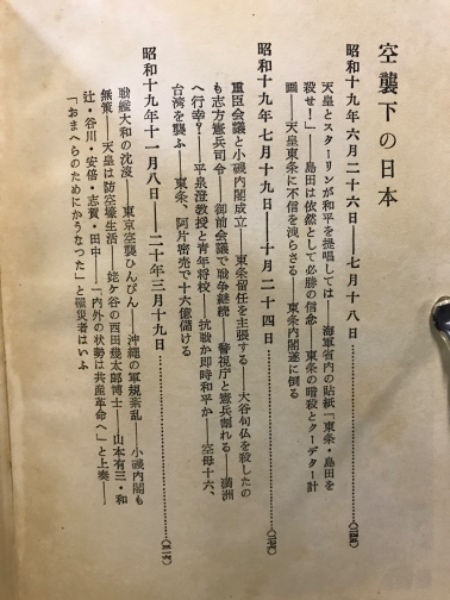 空襲下の日本
昭和十九年六月二十六日――七月十八日
天皇とスターリンが和平を提唱しては――海軍省内の貼紙「東条・島田を
殺せ!」――島田は依然として必勝の信念――東条の暗殺とクーデター計
画――天皇東条に不信を洩らさる――東条内閣遂に倒る
昭和十九年七月十九日――十月二十四日
重臣会議と小磯内閣成立――東条留任を主張する――大谷句仏を殺したの
も志方憲兵司令――御前会議で戦争継続――警視庁と憲兵割れる――満洲
へ行幸?――平泉澄教授と青年将校――抗戦か即時和平か――空母十六、
台湾を襲ふ――東条、阿片密売で十六億儲ける
昭和十九年十一月八日――二十年三月十九日
戦艦大和の沈没――東京空襲ひんぴん――沖縄の軍規紊乱――小磯内閣も
無策――天皇は防空壕生活――姥ケ谷の西田幾太郎博士――山本有三・和
辻・谷川・安倍・志賀・田中――「内外の状勢は共産革命へ」と上奏――
「おまへらのためにかうなった」と罹災者はいふ